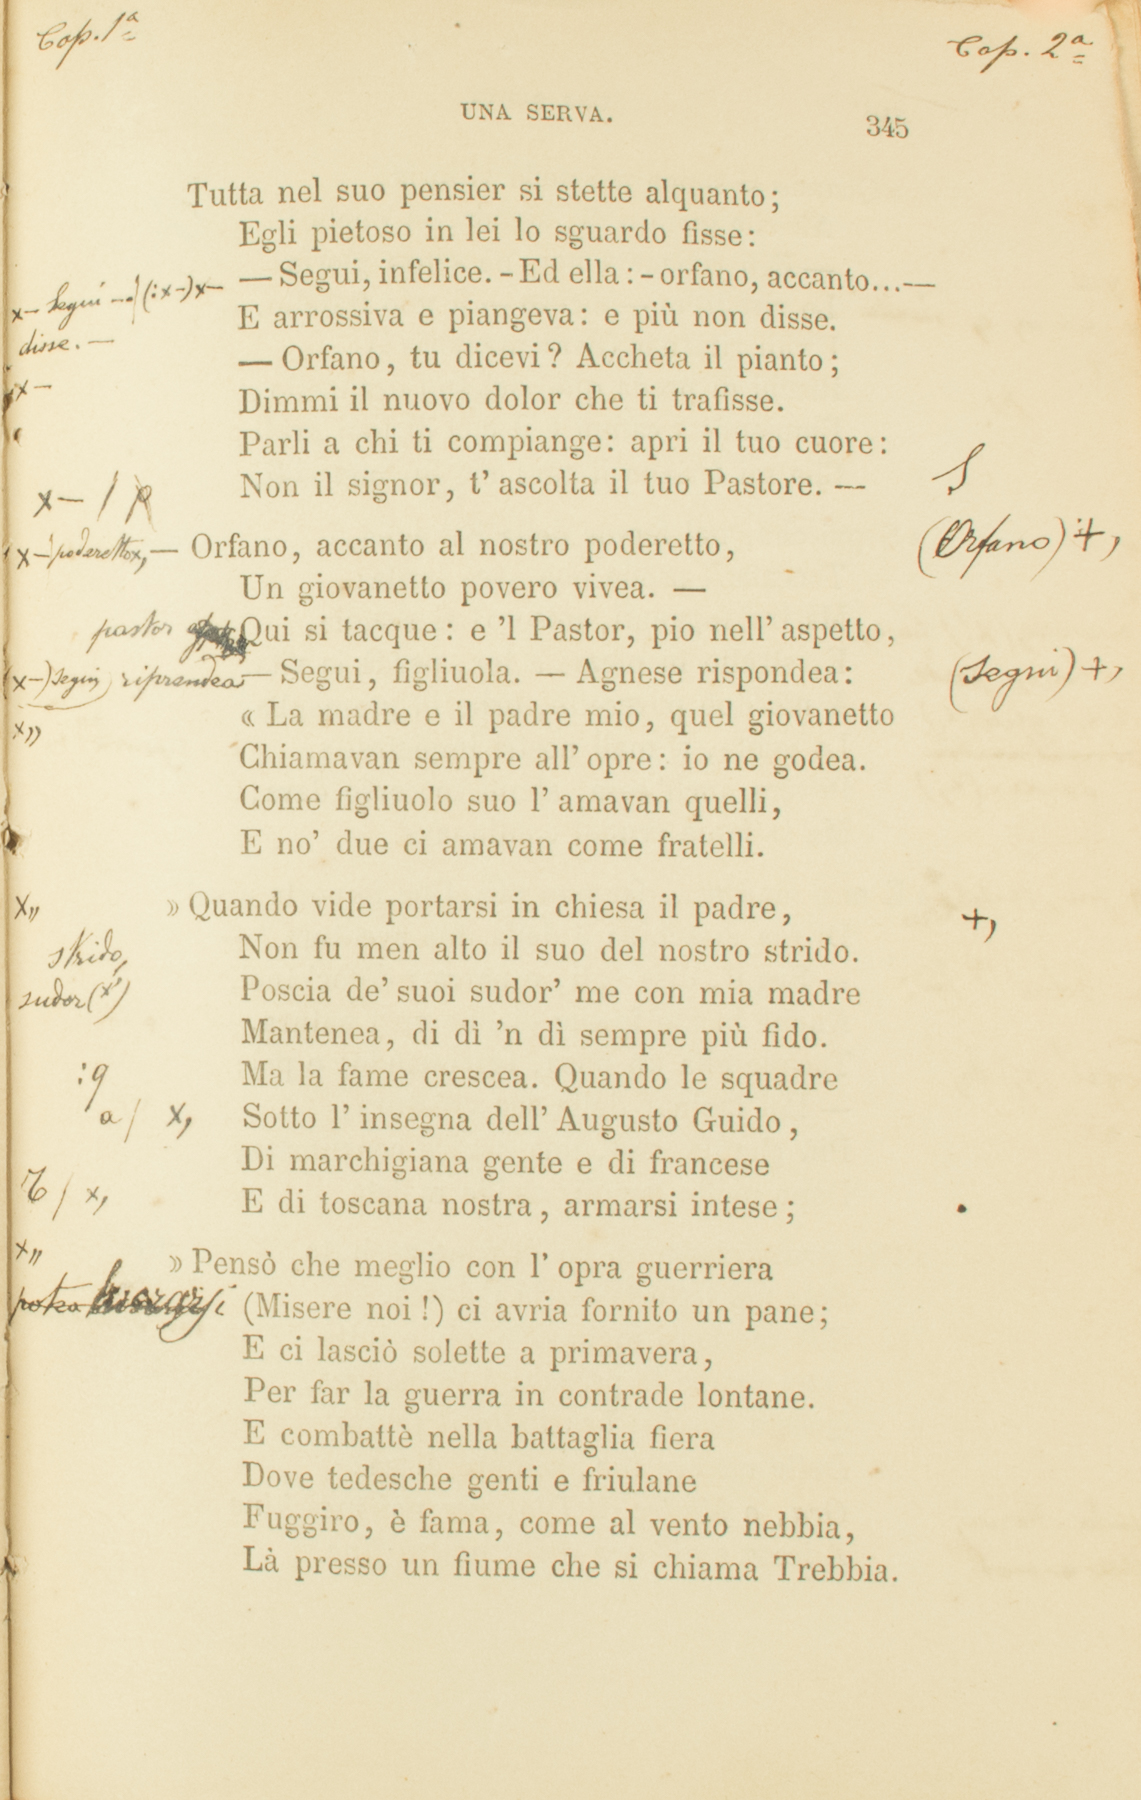 Cop. 1ª
Cop. 2ª
UNA SERVA.
345
Tutta nel suo pensier si stette alquanto;
Egli pietoso in lei lo sguardo fisse:
x— Segui —
(:x-)x—
— Segui, infelice. - Ed ella: - orfano, accanto...—
E arrossiva e piangeva: e più non disse.
disse. —
— Orfano, tu dicevi? Accheta il pianto;
x —
Dimmi il nuovo dolor che ti trafisse.
Parli a chi ti compiange: apri il tuo cuore:
Non il signor, t' ascolta il tuo Pastore. —
x— /
x— poderetto x,
— Orfano, accanto al nostro poderetto,
(Orfano) +,
Un giovanetto povero vivea. —
pastor
Qui si tacque: e 'l Pastor, pio nell' aspetto,
(x—) segui, riprendea
— Segui, figliuola. — Agnese rispondea:
(segui) +,
x,,
« La madre e il padre mio, quel giovanetto
Chiamavan sempre all' opre: io ne godea.
Come figliuolo suo l' amavan quelli,
E no' due ci amavan come fratelli.
x,,
» Quando vide portarsi in chiesa il padre,
+,
strido,
Non fu men alto il suo del nostro strido.
sudor (x')
Poscia de' suoi sudor' me con mia madre
Mantenea, di dì 'n dì sempre più fido.
: q
Ma la fame crescea. Quando le squadre
a / x,
Sotto l' insegna dell' Augusto Guido,
Di marchigiana gente e di francese
/ x,
E di toscana nostra, armarsi intese;
x,,
» Pensò che meglio con l' opra guerriera
(Misere noi!) ci avria fornito un pane;
E ci lasciò solette a primavera,
Per far la guerra in contrade lontane.
E combattè nella battaglia fiera
Dove tedesche genti e friulane
Fuggiro, è fama, come al vento nebbia,
Là presso un fiume che si chiama Trebbia.